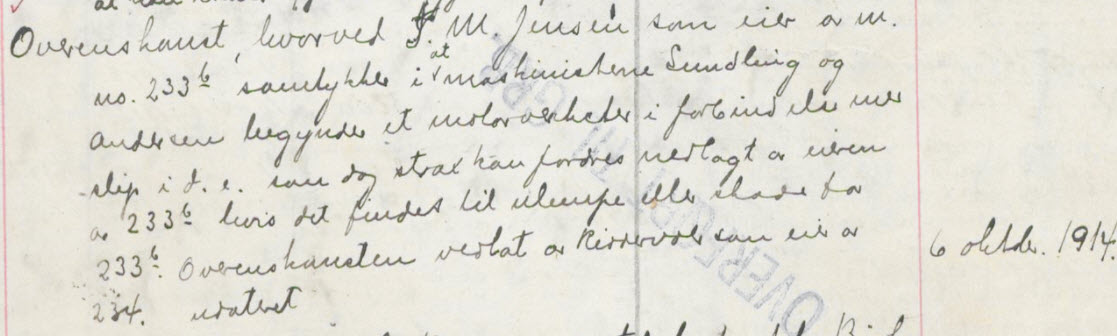 Overenskomst, hvorved J. M. Jensen som eier av m.
no. 233 b samtykker i at maskinisterne Sundling og
Andersen begynder et motorverksted i forbindelse med
slip i d. e. som dog strax kan fordres nedlagt av eieren
av 233 b hvis det findes til ulempe eller skade for
233 b. Overenskomsten vedtat av som eier av 6 oktbr. 1914.
234. udateret
OVERFØRT TIL GRB